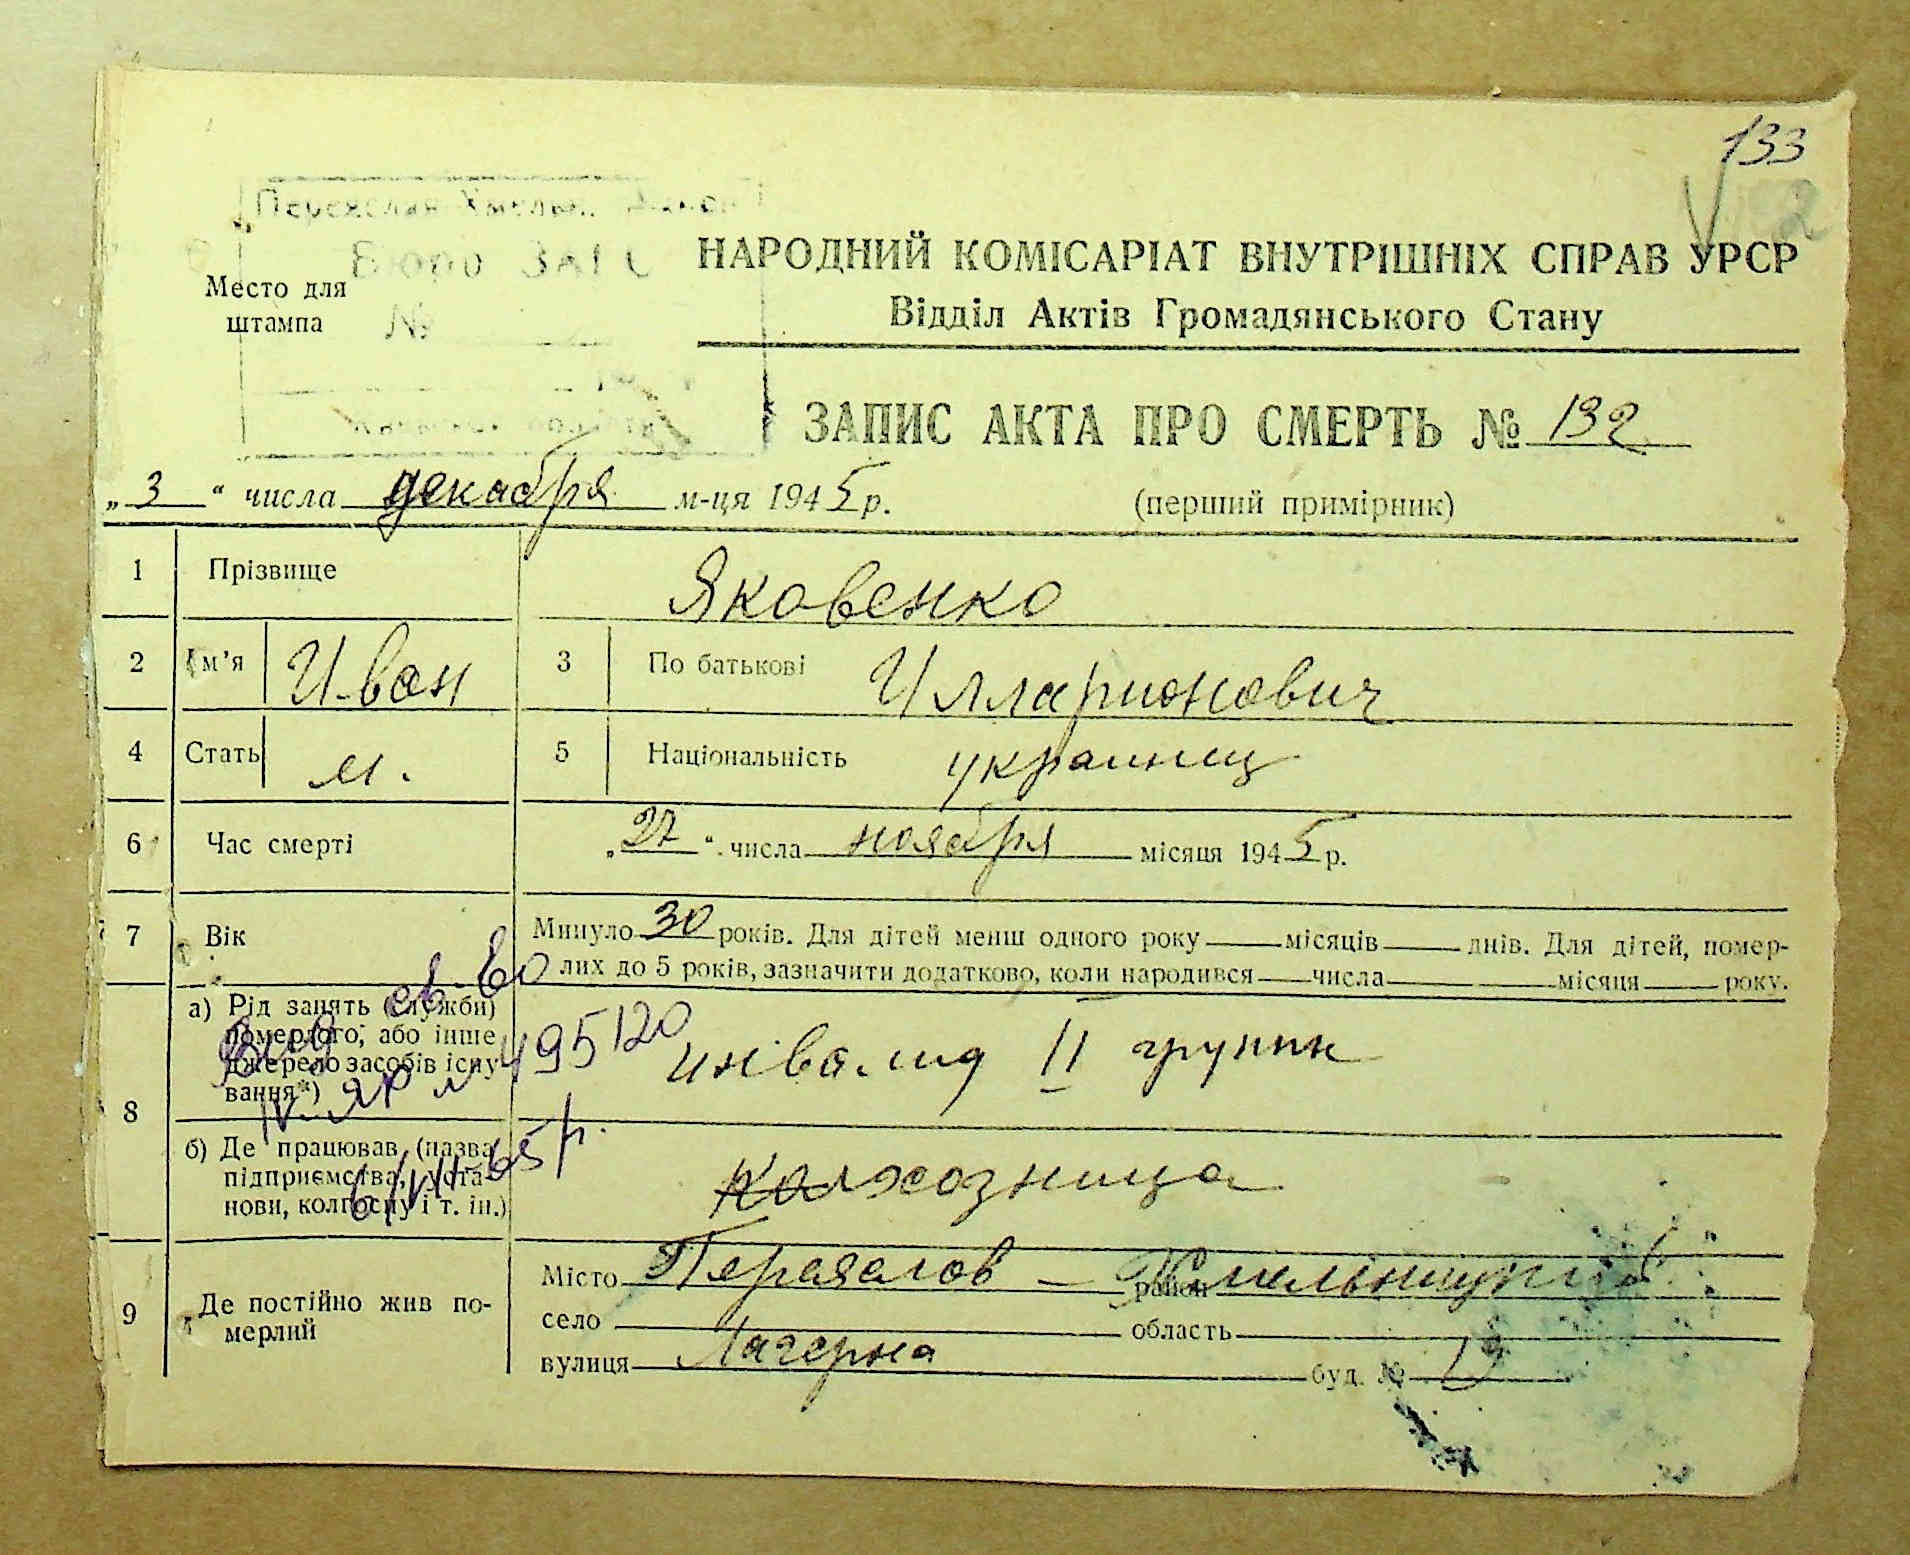 133
Бюро ЗАГС
НАРОДНИЙ КОМІСАРІАТ ВНУТРІШНІХ СПРАВ УРСР
Место для
штампа
№
Відділ Актів Громадянського Стану
ЗАПИС АКТА ПРО СМЕРТЬ № 132
„3“ числа декабря м-ця 1945 р. (перший примірник)
1 Прізвище Яковенко
2 Ім’я Иван 3 По батькові Илларионович
4 Стать м. 5 Національність украинец
6 Час смерті „27“ числа ноября місяця 1945 р.
7 Вік Минуло 30 років. Для дітей менш одного року місяців днів. Для дітей, помер-
лих до 5 років, зазначити додатково, коли народився числа місяця року.
8 а) Рід занять (служби)
померлого, або інше
джерело засобів існу
вання*)
инвалид II групи
св-во
495120
б) Де працював (назва
підприємства, уста-
нови, колгоспу і т. ін.)
колхозница
9 Де постійно жив по-
мерлий
Місто Переяслов - Хмельницкий район
село область
вулиця Лагерна буд. №